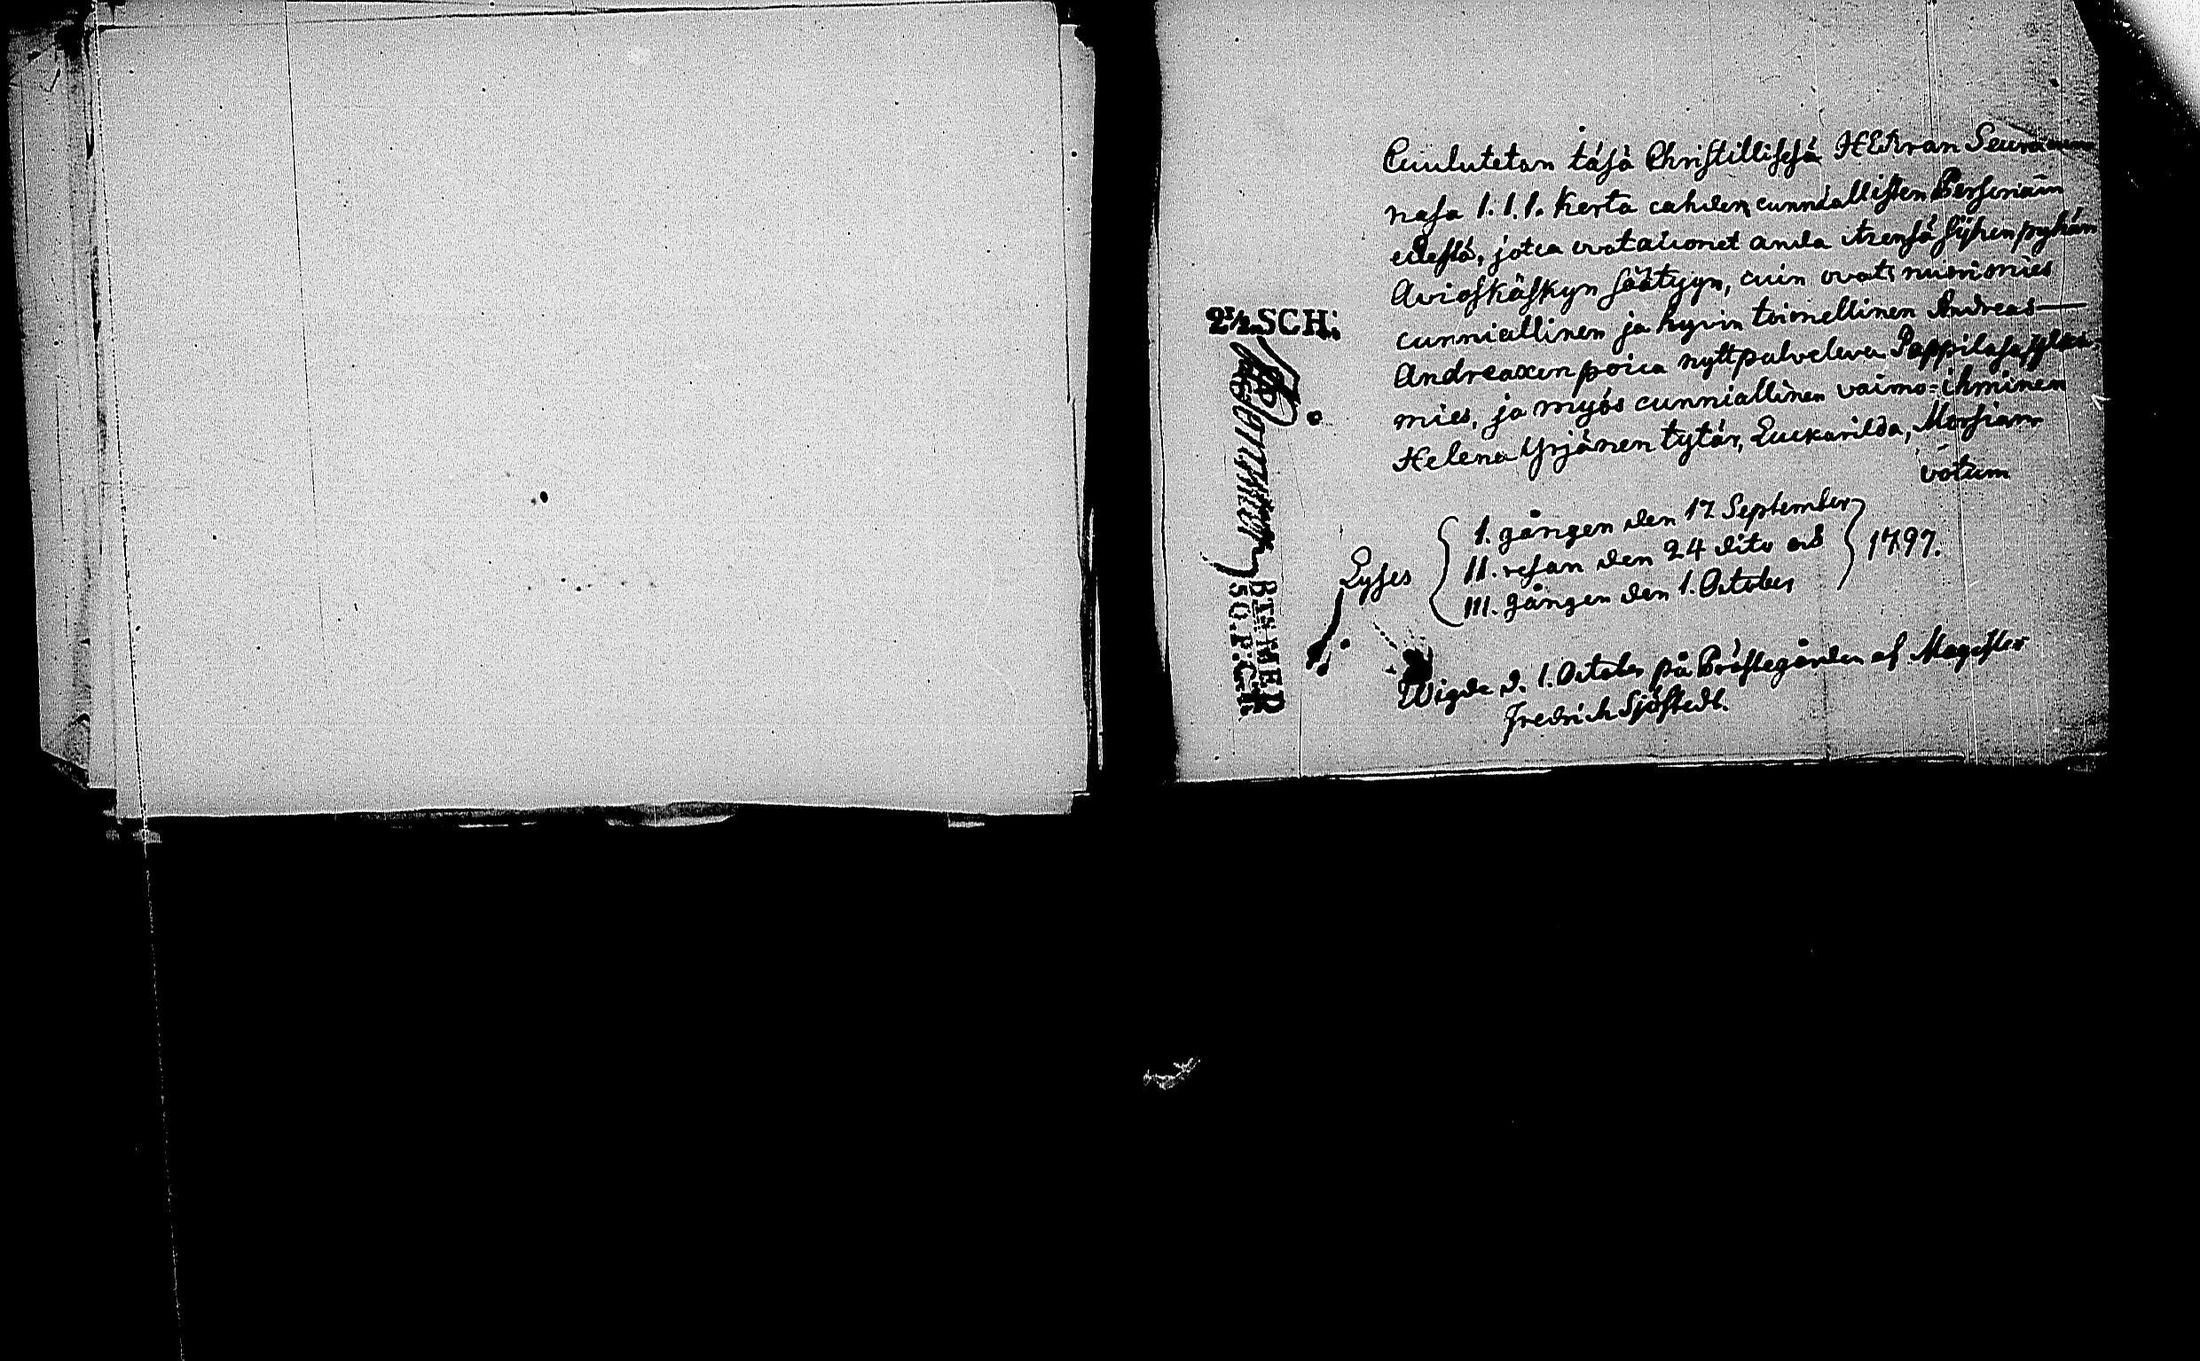 Cuulutetan täsä Christillisesä HERran Seuracun
nasa 1. 1. 1. kerta cahden cunniallisten Personain
edestä, jotca ovat aicomet anda itzensä siihen pyhän
Aviaskäskyn säätyyn, cuin ovat: nuorimies
cunniallinen ja hyvin toimellinen Andreas
Andreaxen poica nyttpalveleva Pappilasa ylkä-
mies, ja myös cunniallinen vaimo-ihminen
Helena Yrjänen tytär, Euckarilda, Morsian
votum
2½ SCH:
BTS MED
50. P.C.
Lyses
I. gången den 17 September
II. resan den 24 dito och
III. gången den 1. October
1797.
Wigde d. 1. October på Prästegården af Magister
Fredrich Sjöstedt.